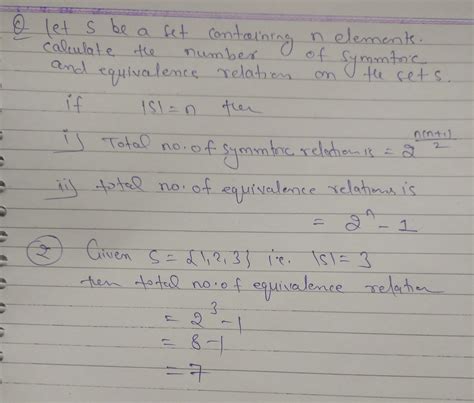 Q let S be a set containing n elements.
calculate the number of symmtric
and equivalence relation on the set S.
if |S| = n then
i) Total no. of symmtric relation is = 2^{n(n+1)/2}
ii) total no. of equivalence relations is
= 2^n - 1
2 Given S = {1,2,3} i.e. |S| = 3
then total no. of equivalence relation
= 2^3 - 1
= 8 - 1
= 7